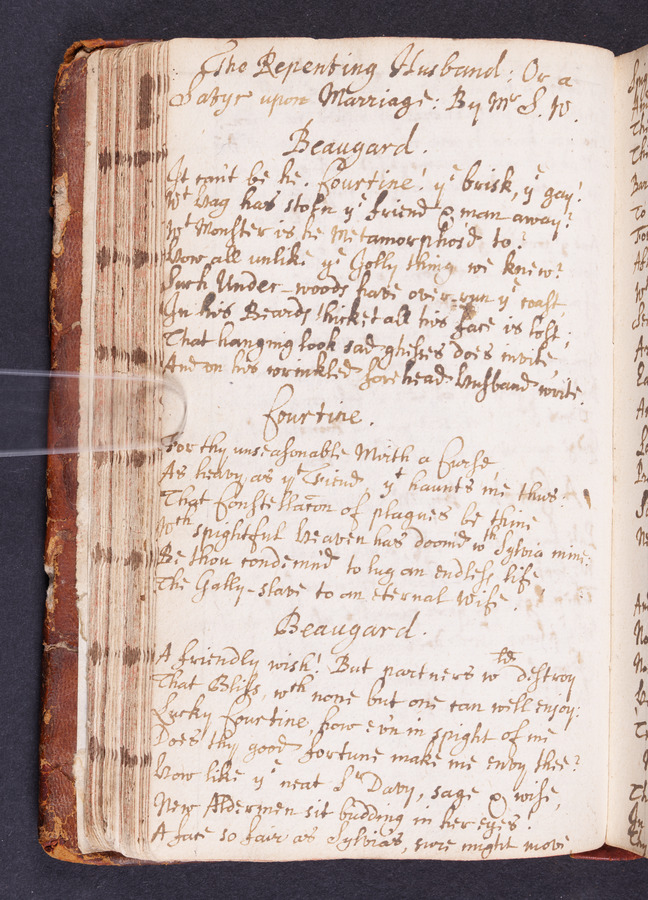 The Repenting Husband: Or a
Satyr upon Marriage: By Mr S. W.
Beaugard.
It can't be he. Courtine! ye brisk, ye gay!
Wt Hag has stol'n ye friend & man away?
Wt Monster is he Metamorphos'd to?
How all unlike ye Jolly thing we knew?
Such Under-woods have over-run ye coast,
In his Beards thicket all his face is lost;
That hanging look sad ghesses does invite
And on his wrinkled forehead Husband write.
Courtine.
For thy unseasonable Mirth a Curse
As heavy as ye Friend yt haunts me thus!
That Constellation of plagues be thine
Wch spightful Heaven has doom'd wth Sylvia mine:
Be thou condemn'd to lug an endless life
The Gally-slave to an eternal Wife.
Beaugard.
A friendly wish! But partners wld destroy
That Bliss, wch none but one can well enjoy:
Lucky Courtine, how ev'n in spight of me
Does thy good fortune make me envy thee?
How like ye neat Sr Davy, sage & wise,
New Aldermen sit budding in her eyes!
A face so fair as Sylvias, sure might move